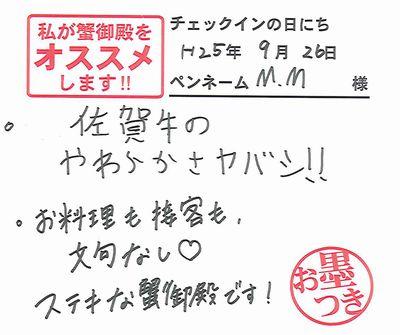 私が蟹御殿を
オススメ
します!!
チェックインの日にち
H25年 9月 26日
ペンネーム M.M 様
。佐賀牛の
やわ〜かさヤバシ!!
。お料理も接客も、
文句なし♡
ステキな蟹御殿です!
お墨つき